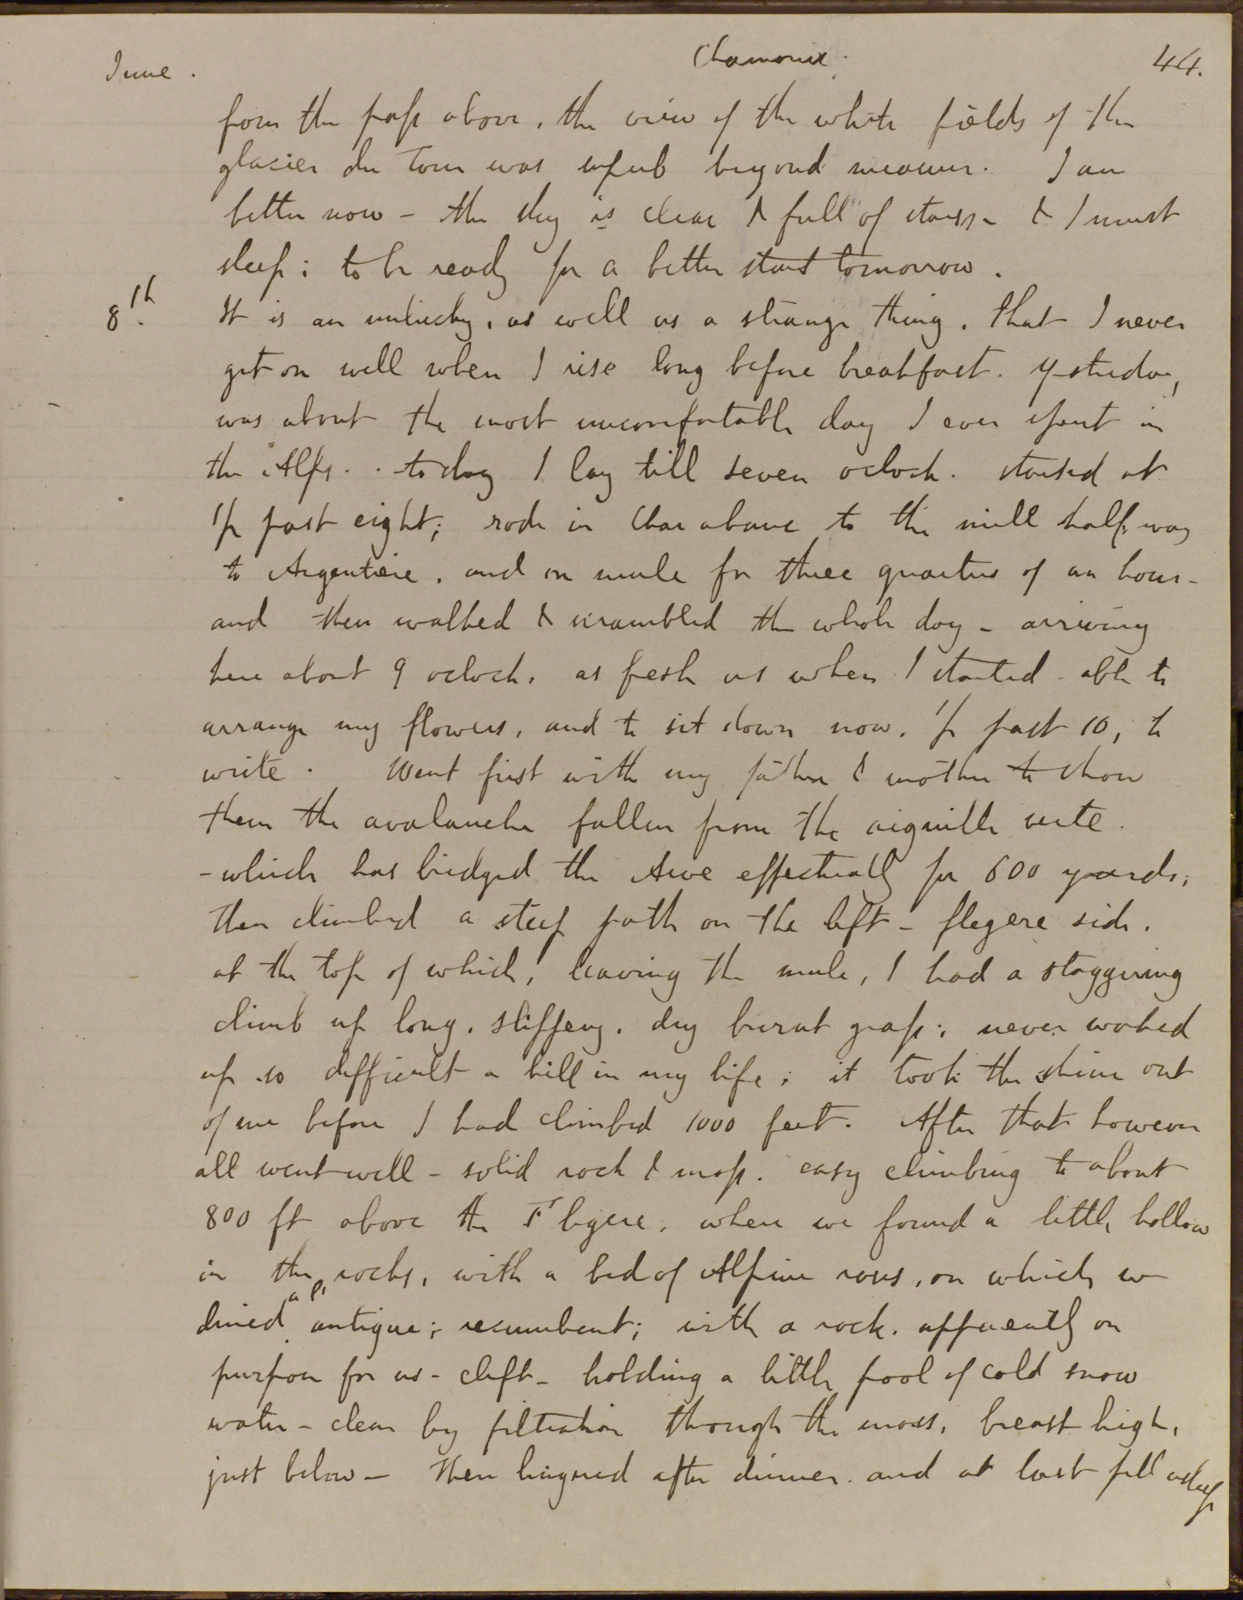 June. Chamonix. 44.
from the pass above, the view of the white fields of the
glacier du Tour was superb beyond measure. I am
better now – the sky is clear & full of stars – & I must
sleep; to be ready for a better start tomorrow.
8th. It is an unlucky, as well as a strange thing, that I never
get on well when I rise long before breakfast. Yesterday
was about the most uncomfortable day I ever spent in
the Alps. today I lay till seven oclock. started at
1/2 past eight; rode in Char a banc to the mill half way
to Argentiere, and on mule for three quarters of an hour –
and then walked & scrambled the whole day – arriving
here about 9 oclock, as fresh as when I started – able to
arrange my flowers, and to sit down now, 1/2 past 10, to
write. Went first with my father & mother to show
them the avalanche fallen from the aiguille verte.
– which has bridged the Arve effectually for 600 yards;
then climbed a steep path on the left – flegere side.
at the top of which, leaving the mule, I had a staggering
climb up long, slippery, dry burnt grass; never worked
up so difficult a hill in my life; it took the shine out
of me before I had climbed 1000 feet. After that however
all went well – solid rock & moss. easy climbing to about
800 ft above the Flegere, where we found a little hollow
in the rocks, with a bed of Alpine roses, on which we
dined a l' antique; recumbent; with a rock, apparently on
purpose for us – cleft – holding a little pool of cold snow
water – clear by filtration through the moss, breast high,
just below – Then lingered after dinner. and at last fell asleep